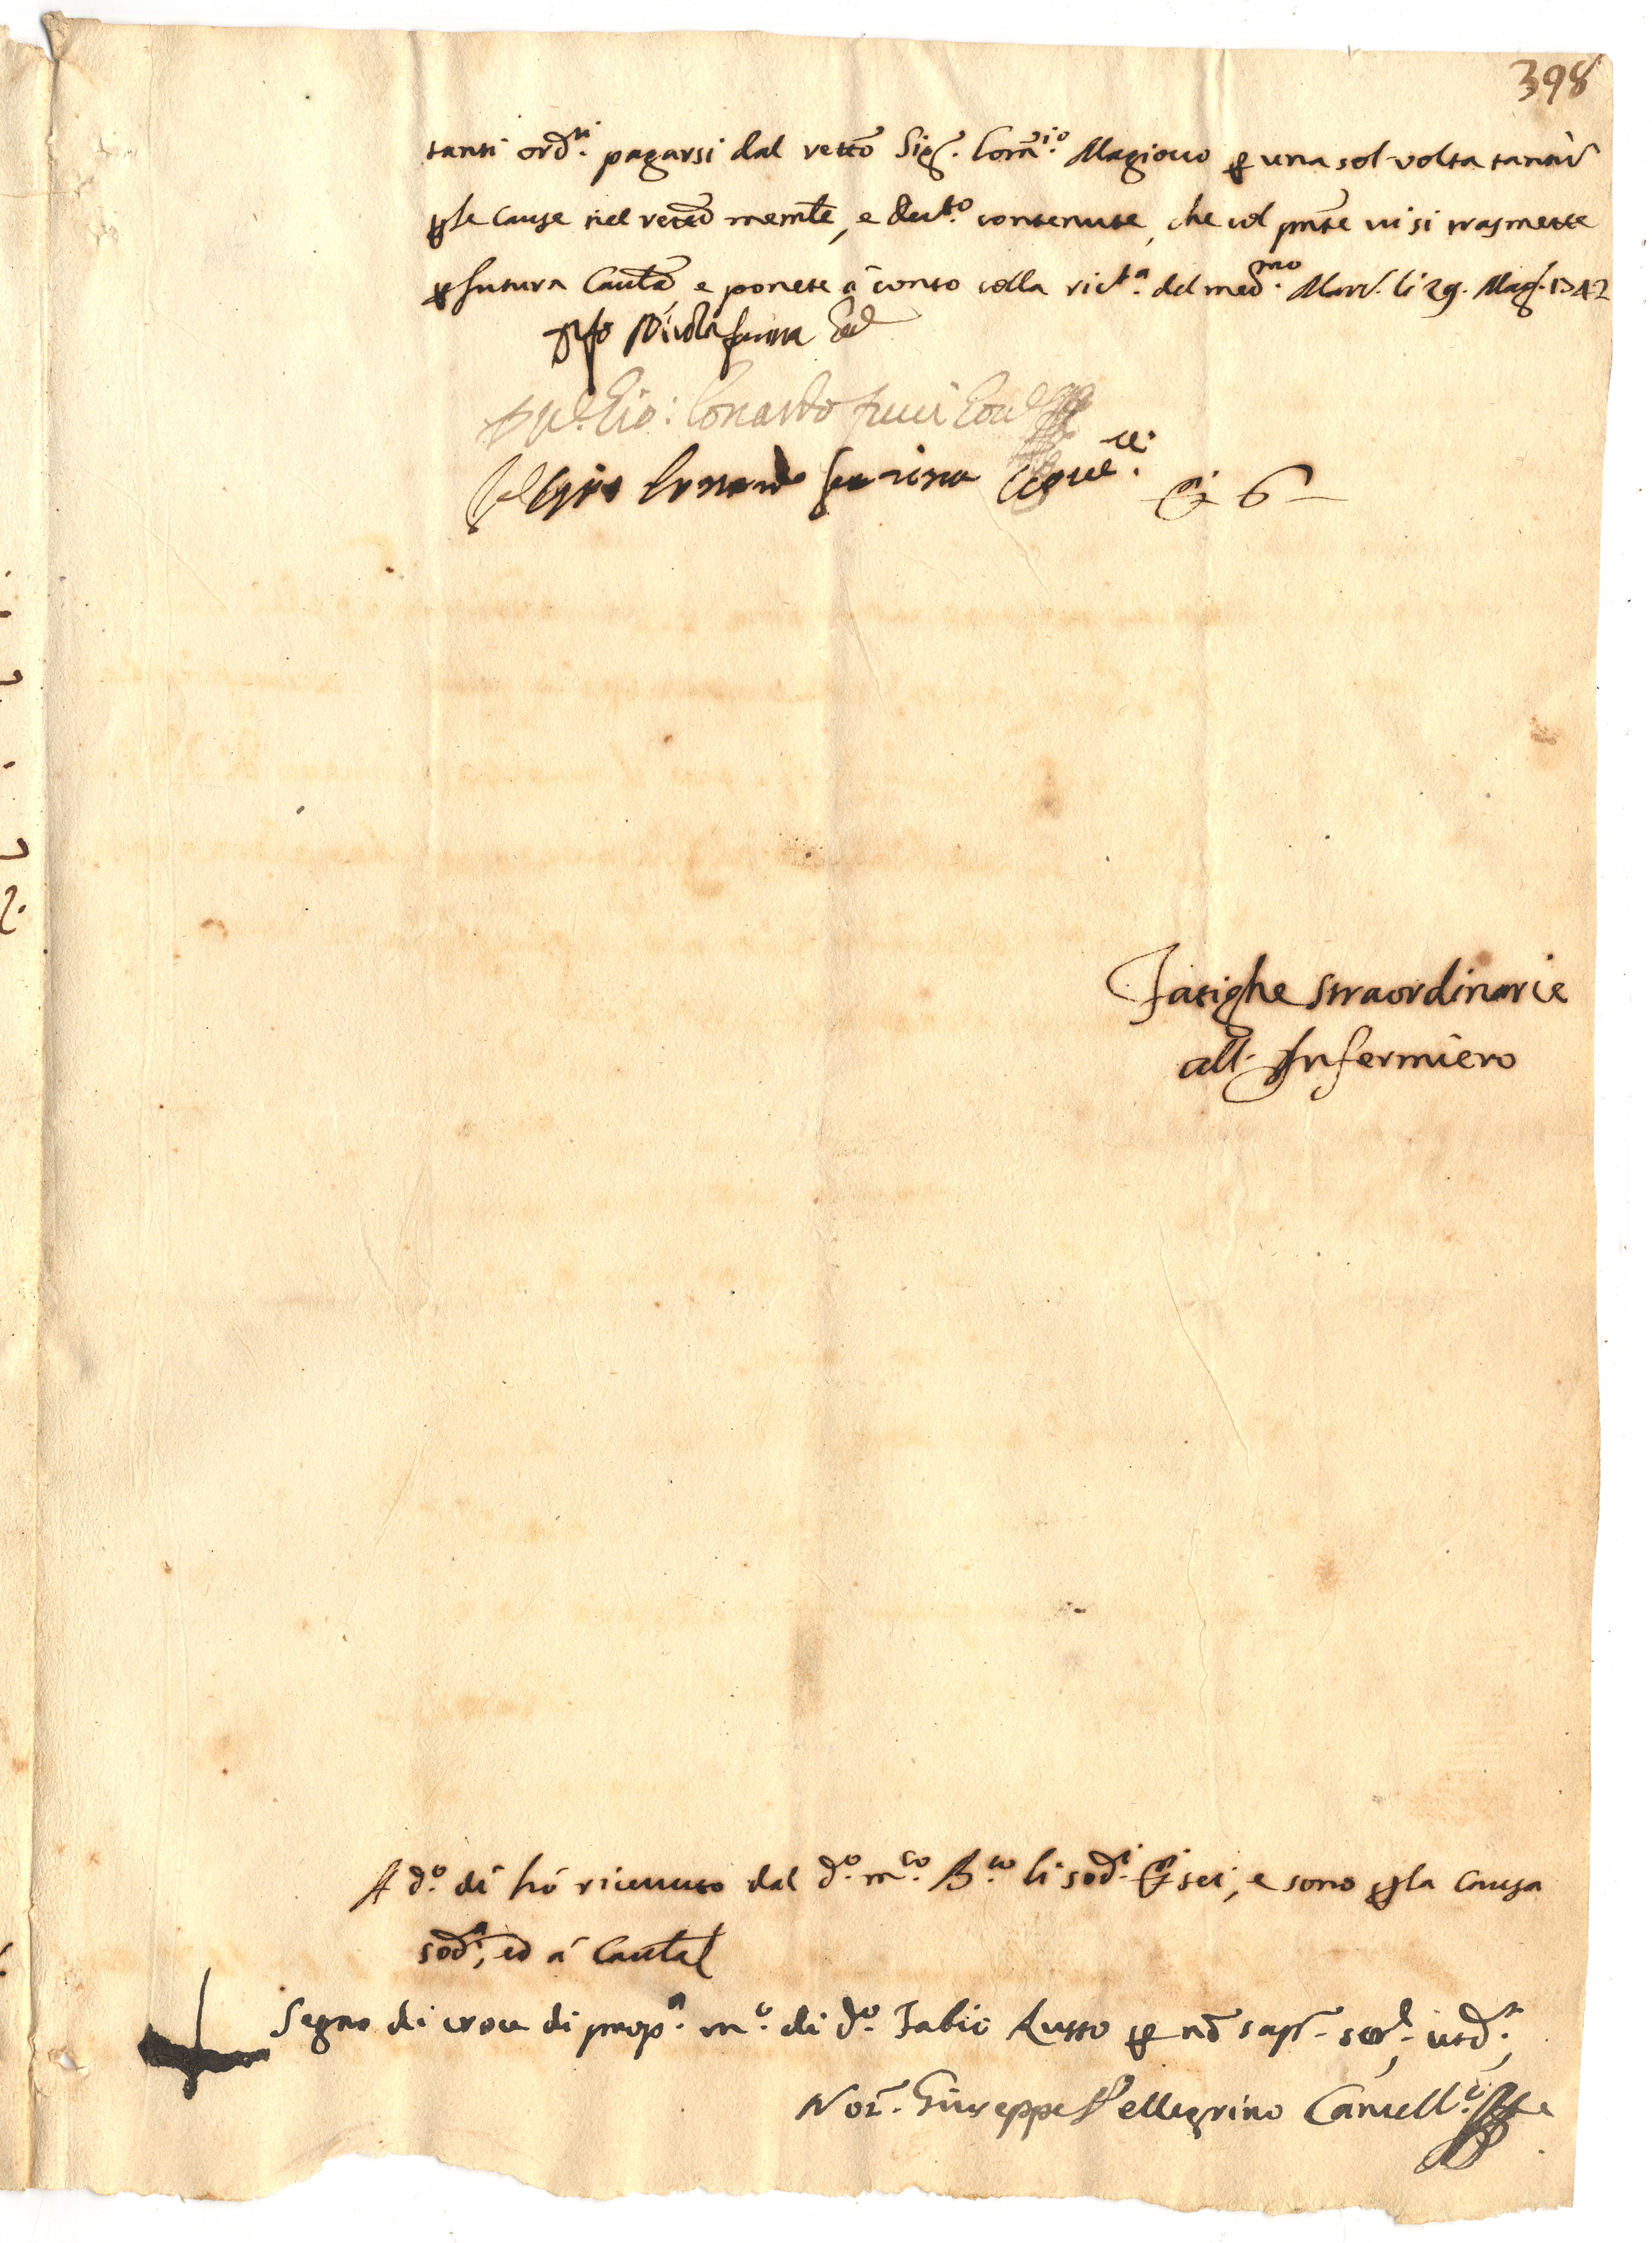 398
tanti ord.ti pagarsi dal retto Sig. Com.io Magiouo p una sol volta tantũ
p le Cause nel retto memle, e decto contenute, che col pnte vi si trasmette
p futura Cautla, e ponete à conto colla ric.ta del med.mo Marc. li 29. Mag. 1742
Gio: Lonardo
₯ 6
Fatighe straordinarie
all' Infermiero
A d.o dì hò riceuuto dal d.o m.co B.ro li sod.i ₯ sei, e sono p la Causa
sod.a, ed à Cautla
Segno di croce di prop.a m.o di d.o Fabio Russo p nõ sap. scr.e, ut d.r,
Not. Giuseppe Pellegrino Cancell.e